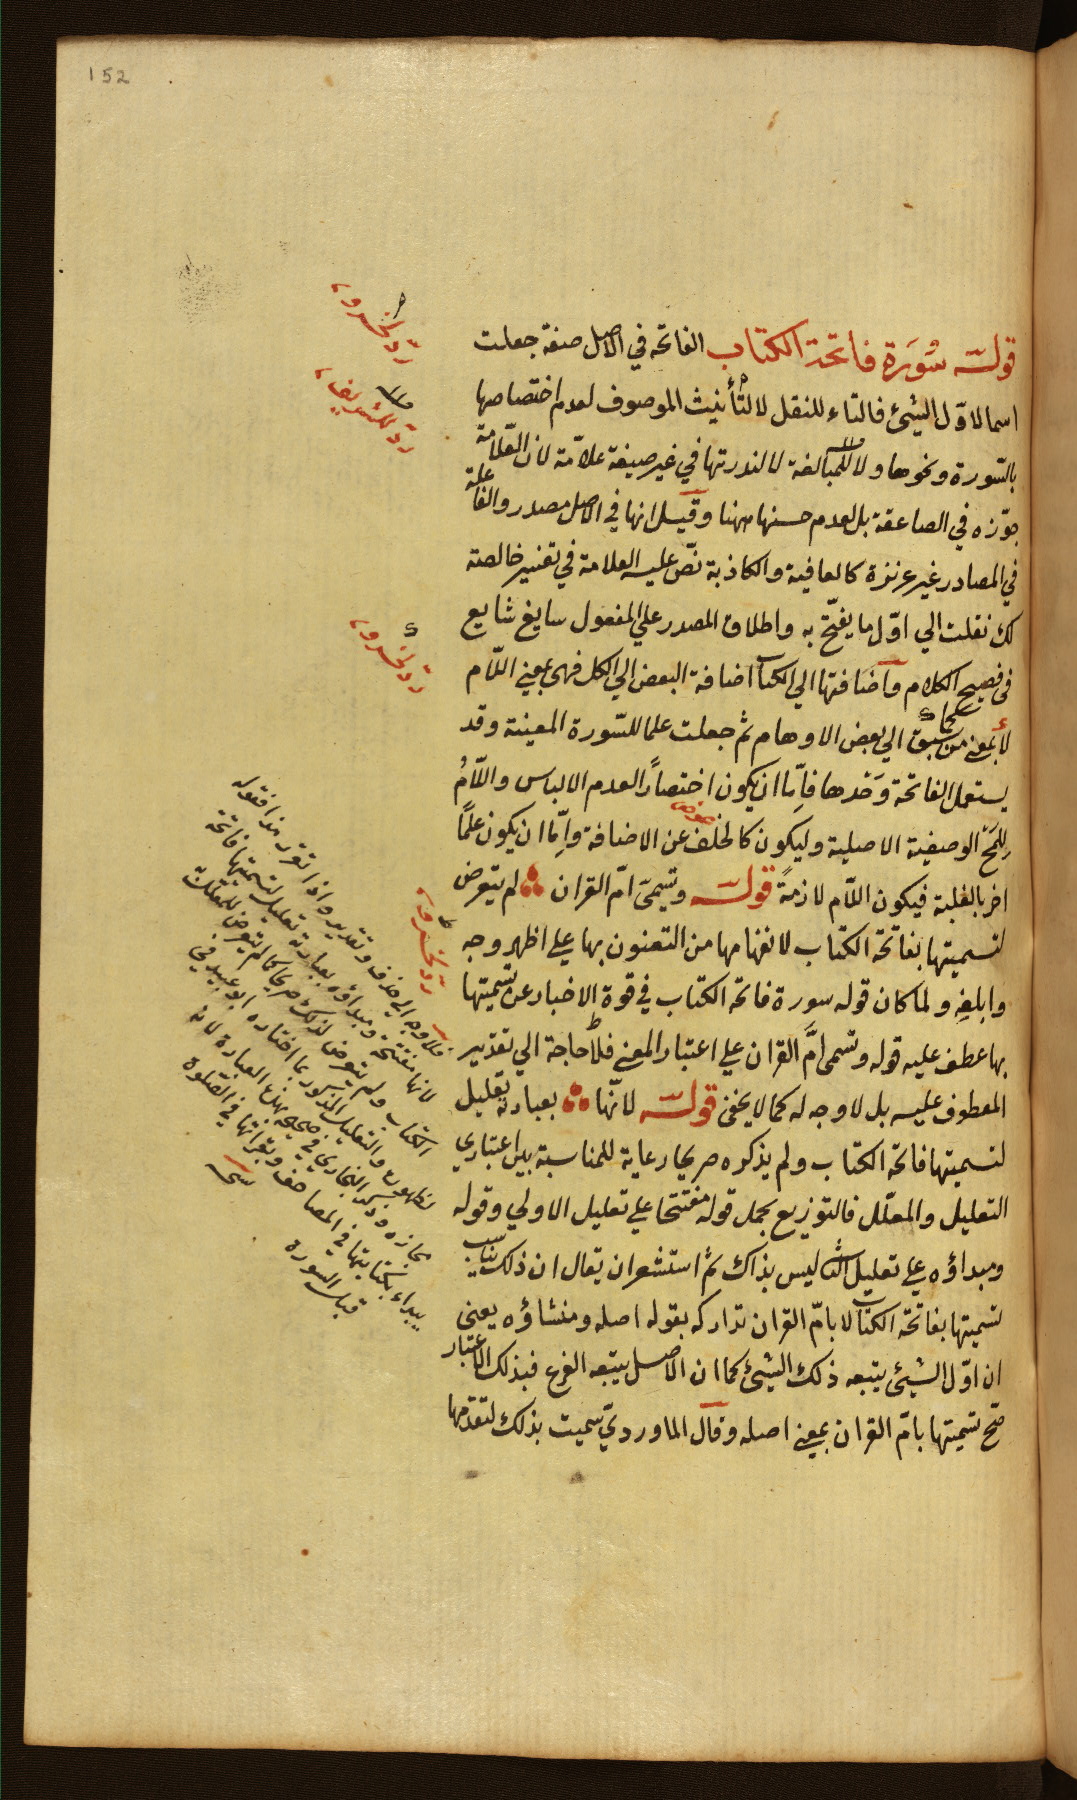 152
قوله سُورَة فاتحة الكتاب الفاتحه في الاصل صفة جعلت
اسما لاوّل الشيئ فالتاء للنقل لا لتأنيث الموصوف لعدم اختصاصها
بالسّورة ونحوها ولا للمبالغة لا لندرتها في غير صيغة علاّمة لان العّلامة
جوّزه في الصاعقة بل لعدم حسنها ههنا وقيل انها في الاصل مصدر والفاعلة
في المصادر غير عزيزة كالعافية والكاذبة نصّ عليه العلامة في تفسير خالصة
لك نقلت الي اوّل ما يفتّح به واطلاق المصدر علي المفعول سايغ شايع
في فصيح الكلام واضافتها الي الكتاب اضافة البعض الي الكل فهي بمعني اللّام
لا بمعني من كما سبق الي بعض الاوهام ثم جعلت علما للسّورة المعينة وقد
يستعمل الفاتحة وَحدها فاِمّا ان يكون اختصاراً لعدم الالباس واللّامُ
لِلَمْحِ الوصفية الاصلية وليكون كالخلف عن الاضافة واِمّا ان يكون علمًا
عوض
اخر بالغلبة فيكون اللّام لازمةً قوله وتسمىّ امّ القران لم يتعرض
لتسميتها بفاتحة الكتاب لانفهامها من التعنون بها علي اظهر وجه
وابلغه ولما كان قوله سورة فاتحة الكتاب في قوة الاخبار عن تسميتها
بها عطف عليه قوله وتسمى امَّ القران علي اعتبار المعني فلا حاجة الي تقدير
المعطوف عليه بل لا وجه له كما لا يخفي قوله لانّها بعبارته تعليل
لتسميتها فاتحة الكتاب ولم يذكره صريحا رعاية للمناسبة بين اعتباري
التعليل والمعلّل فالتوزيع بجمل قوله مفتتحا علي تعليل الاولي وقوله
ومبداؤه علي تعليل الثاني ليس بذاك ثم استشعر ان يقال ان ذلك يناسب
تسميتها بفاتحة الكتاب لا بامّ القران تداركه بقوله اصله ومنشاؤه يعني
ان اوّل الشيئ يتبعه ذلك الشيئ كما ان الاصل يتبعه الفرع فبذلك الاعتبار
صّح تسميتها بامّ القران بمعني اصله وقال الماورديّ سميت بذلك لتقدّمها
ردّ لخسرو
ردّ للشريف
ردّ لخسرو
ردّ لخسرو
فلا وجه الي حذف وتقدير واذا تقرر هذا فقوله
لانها مفتتحه ومبداؤه بعبارته تعليل لتسميتها فاتحة
الكتاب ولم يتعرض لذلك صريحا كما لم يتعرض للمعلل به
لظهوره والتعليل المذكور بما اختاره ابو عبيد في
مجازه وذكر البخاري في صحيحه بهذه العبارة لانه
يبداء بكتابتها في المصاحف وبقرأتها في الصّلوة
قبل السورة